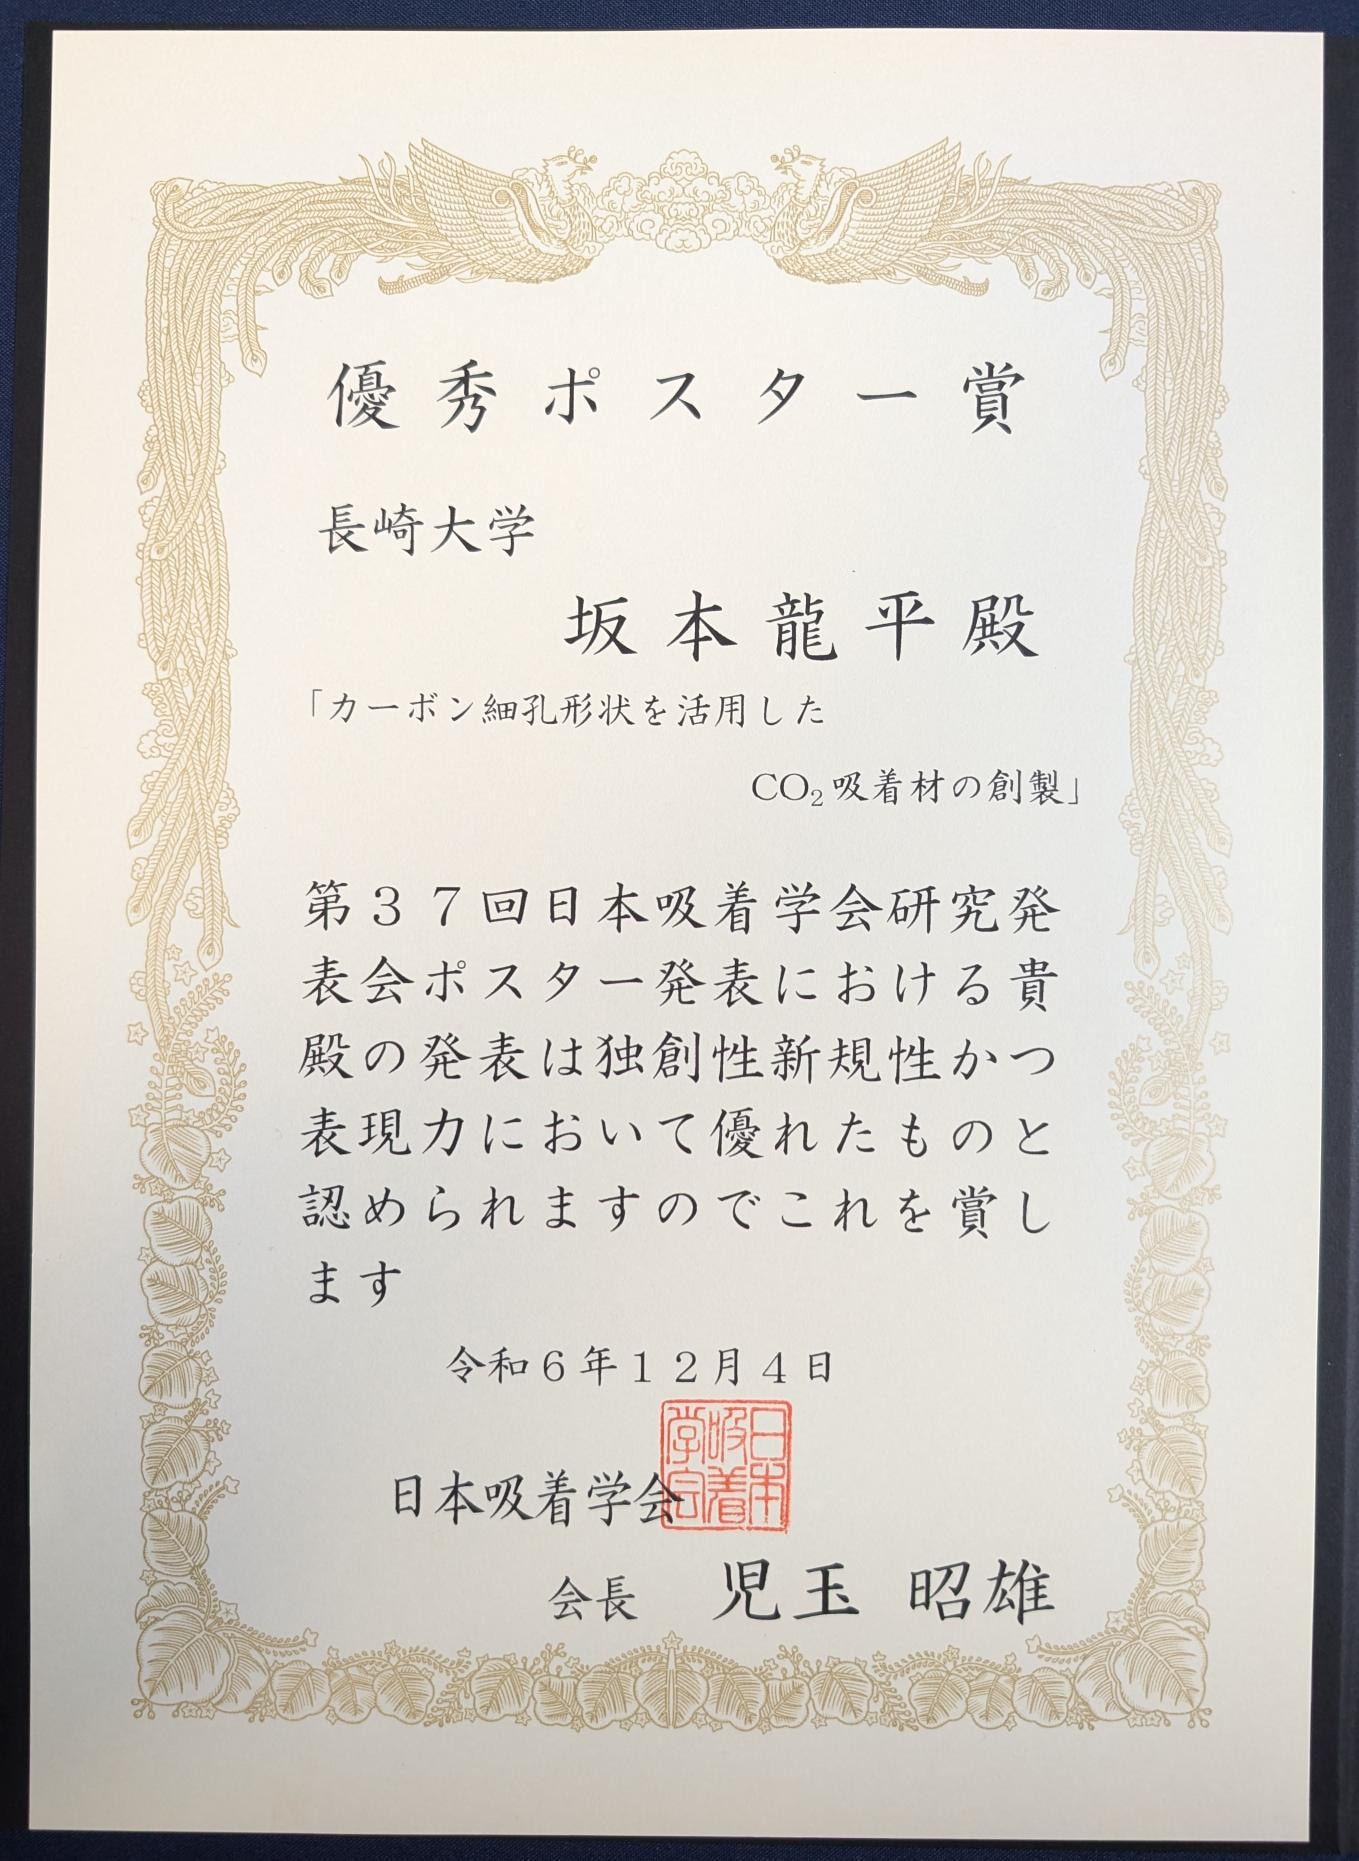 優秀ポスター賞
長崎大学
坂本龍平殿
「カーボン細孔形状を活用した
CO₂吸着材の創製」
第３７回日本吸着学会研究発
表会ポスター発表における貴
殿の発表は独創性新規性かつ
表現力において優れたものと
認められますのでこれを賞し
ます
令和６年１２月４日
日本吸着学会
会長 児玉 昭雄
日本
吸着
学会